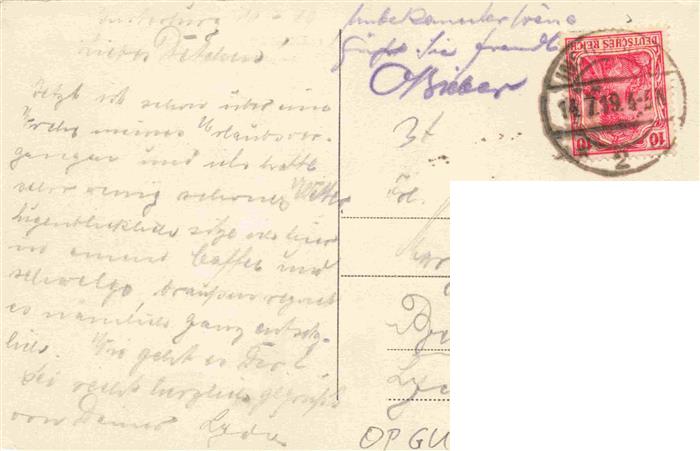 Insterburg
Liebes Detchen!
Jetzt ist schon über eine
Woche meines Urlaubs ver-
gangen und ich hatte
sehr wenig schönes Wetter.
Augenblicklich sitze ich hier
in einem Caffee und
schwelge, draußen regnet
es nämlich ganz entsetz-
lich. Wie geht es Dir?
Sei recht herzlich gegrüßt
von Deiner Lyda
Unbekannter weise
grüßt Sie freundl.
O Bieber
DEUTSCHES REICH
10 10
14.7.19.4-5
2
Frl.
OP GU